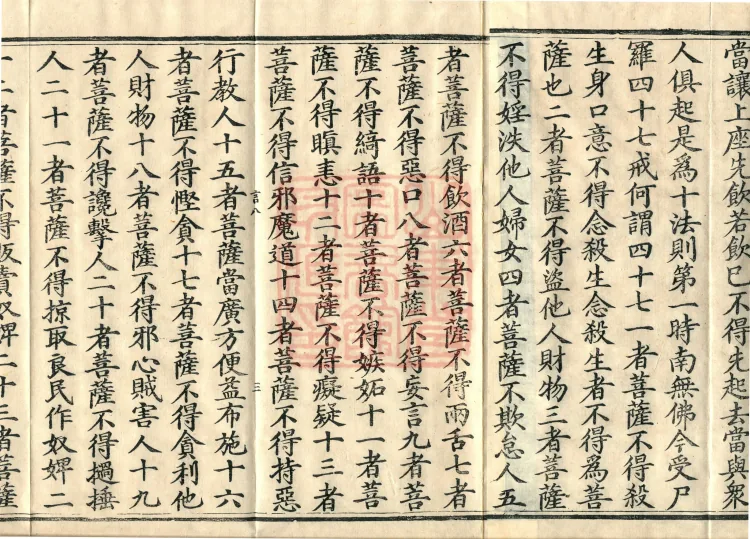 當讓上座先飲若飲已不得先起去當與衆
人俱起是爲十法則第一時南無佛今受尸
羅四十七戒何謂四十七一者菩薩不得殺
生身口意不得念殺生念殺生者不得爲菩
薩也二者菩薩不得盜他人財物三者菩薩
不得婬泆他人婦女四者菩薩不欺怠人五
者菩薩不得飲酒六者菩薩不得兩舌七者
菩薩不得惡口八者菩薩不得妄言九者菩
薩不得綺語十者菩薩不得嫉妬十一者菩
薩不得瞋恚十二者菩薩不得癡疑十三者
菩薩不得信邪魔道十四者菩薩不得持惡
言八 三
行教人十五者菩薩當廣方便益布施十六
者菩薩不得慳貪十七者菩薩不得貪利他
人財物十八者菩薩不得邪心賊害人十九
者菩薩不得讒擊人二十者菩薩不得撾捶
人二十一者菩薩不得掠取良民作奴婢二
十二者菩薩不得販賣奴婢二十三者菩薩